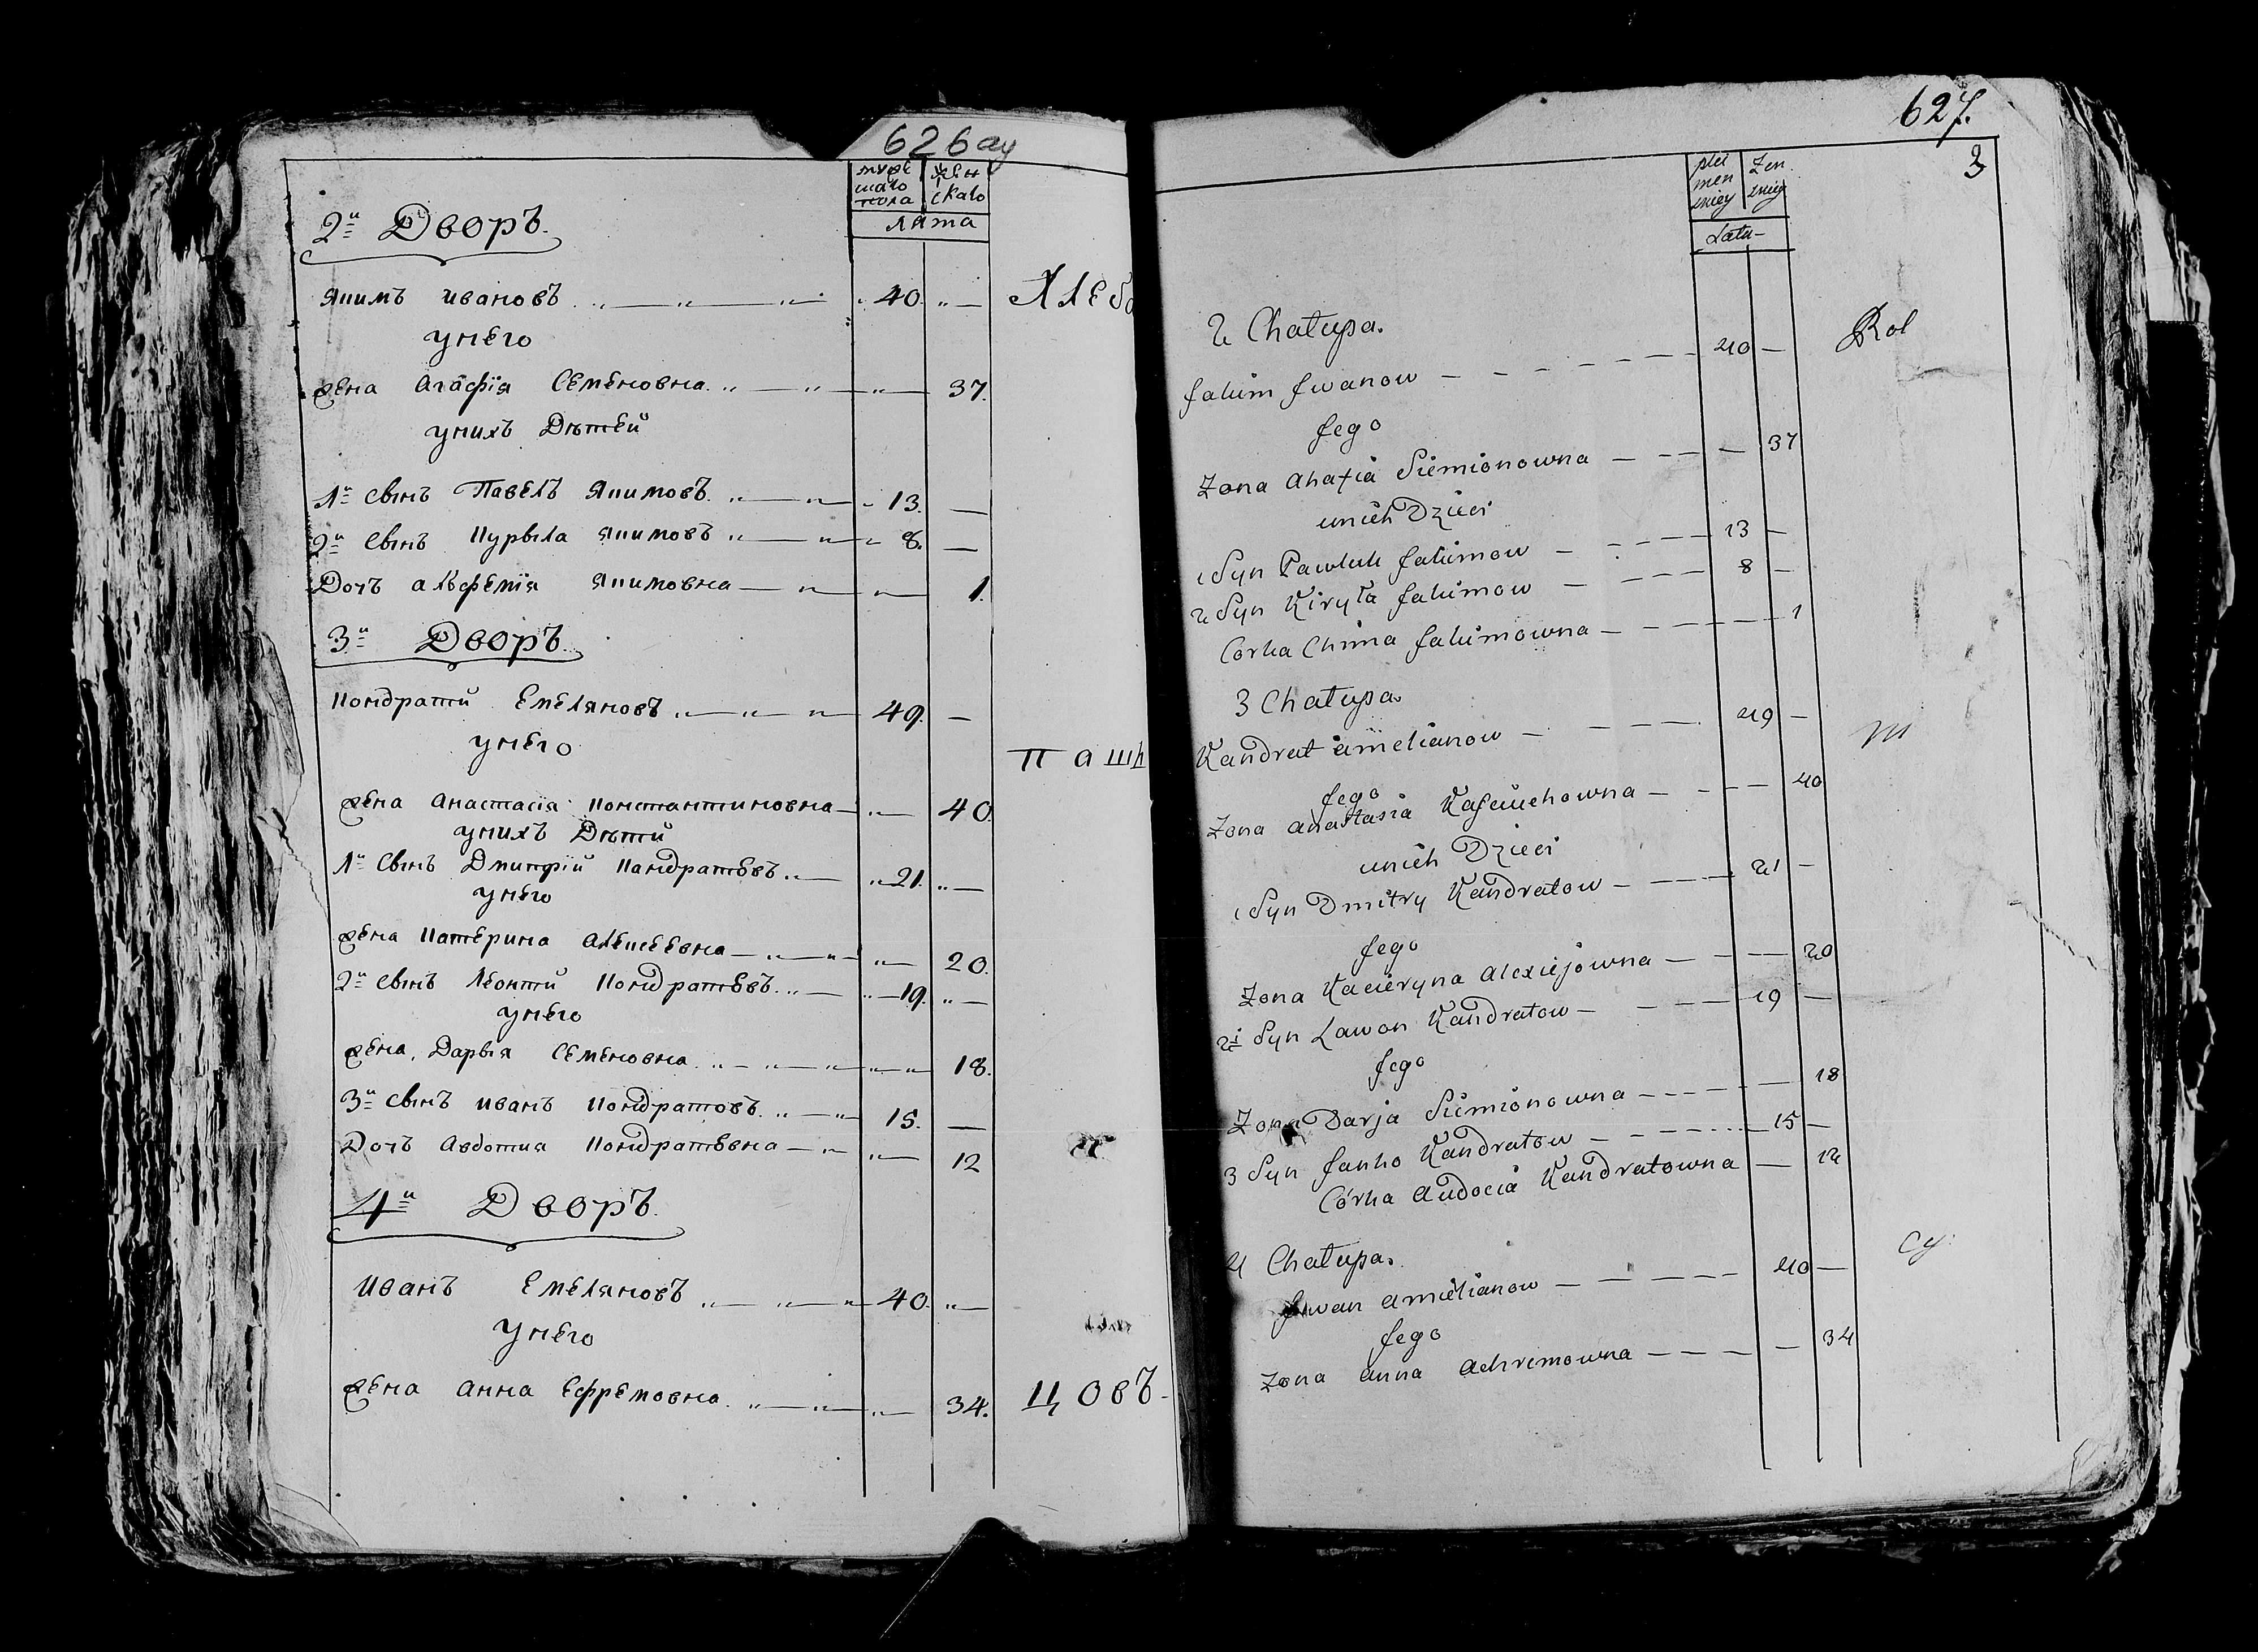 626 ау
муже
шаго
пола
жен
скаго
лята
2й Дворъ.
Якимъ ивановъ 40.
унего
жена Агафія Семеновна 37.
унихъ Дѣтей
1й свінъ Павелъ Якимовъ 13.
2й свінъ Курыла Якимовъ 8.
Дочъ аѳфемія Якимовна 1.
3й Дворъ.
Кондратй Емеляновъ 49.
унего
пашн
жена Анастасія Константиновна 40.
унихъ Дѣти
1й Свінъ Дмитрій Кандратевъ 21.
унего
жена Катерина алексеевна 20.
2й свінъ Леонтй Кондратевъ 19.
унего
жена Дарья Семеновна 18.
3й свінъ иванъ Кондратовъ 15.
Доч Авдотиа Кондратевна 12
4й Дворъ.
Иванъ Емеляновъ 40.
Унего
жена Анна Ефремовна 34.
цовъ
627.
3
Żen
Latu
2 Chałupa.
Rol
Jakim Jwanow 40
Jego
Żona Ahafia Siemionowna 37
unich Dzieci
1 Syn Pawluk Jakimow 13
2 Syn Kiryła Jakimow 8
Corka Chima Jakimowna 1
3 Chałupa.
Kandrat amelianow 49
Jego
Żona anastasia 40
unich Dzieci
1 Syn Dmitry Kandratow 21
Jego
Żona Kacieryna Alexiejowna 20
2i Syn Lawon Kandratow 19
Jego
Żona Darja Siemionowna 18
3 Syn Janko Kandratow 15
Córka Audocia Kandratowna 12
4 Chałupa.
Jwan amielianow 40
Jego
Żona anna Achremowna 34